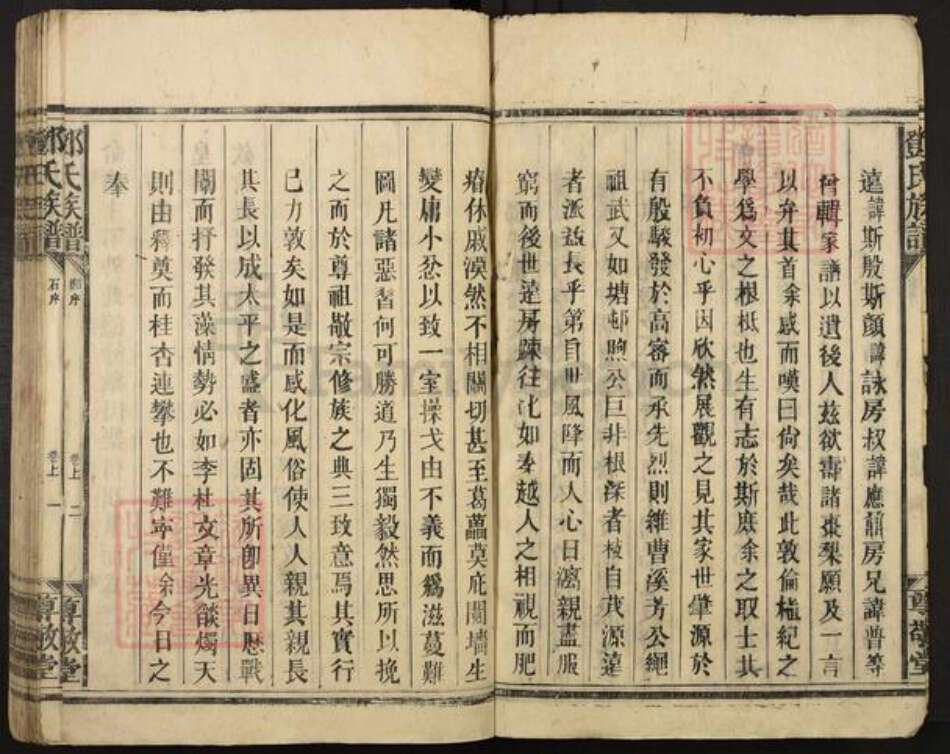 鄧氏族譜
尊敬堂
遠諱斯殷斯顏諱詠房叔諱應鼐房兄諱普等
何輯家譜以遺後人茲欲壽諸棗梨願及一言
以弁其首余感而嘆曰尚矣哉此敦倫植紀之
學爲文之根柢也生有志於斯庶余之取士其
不負初心乎因欣然展觀之見其家世肇源於
有殷駿發於高審而承先烈則維曹溪芳公繩
祖武又如塘邨煦公巨非根深者枝自茂源遠
者派益長乎第自世風降而人心日漓親盡服
窮而後世遠房踈往北如秦越人之相視而肥
瘠休戚漠然不相關切甚至葛藟莫庇鬩墻生
變庸小忿以致一室操戈由不義而爲滋蔓難
圖凡諸惡習何可勝道乃生獨毅然思所以挽
之而於尊祖敬宗修族之典三致意焉其實行
已力敦矣如是而感化風俗使人人親其親長
其長以成太平之盛者亦固其所卽異日歷戰
闈而抒發其藻情勢必如李杜文章光燄燭天
則由釋奠而桂杏連攀也不難寧僅余今日之
奉
鄧氏族譜
卷上
二
尊敬堂
鄧氏族譜
石序
卷上
一
尊敬堂